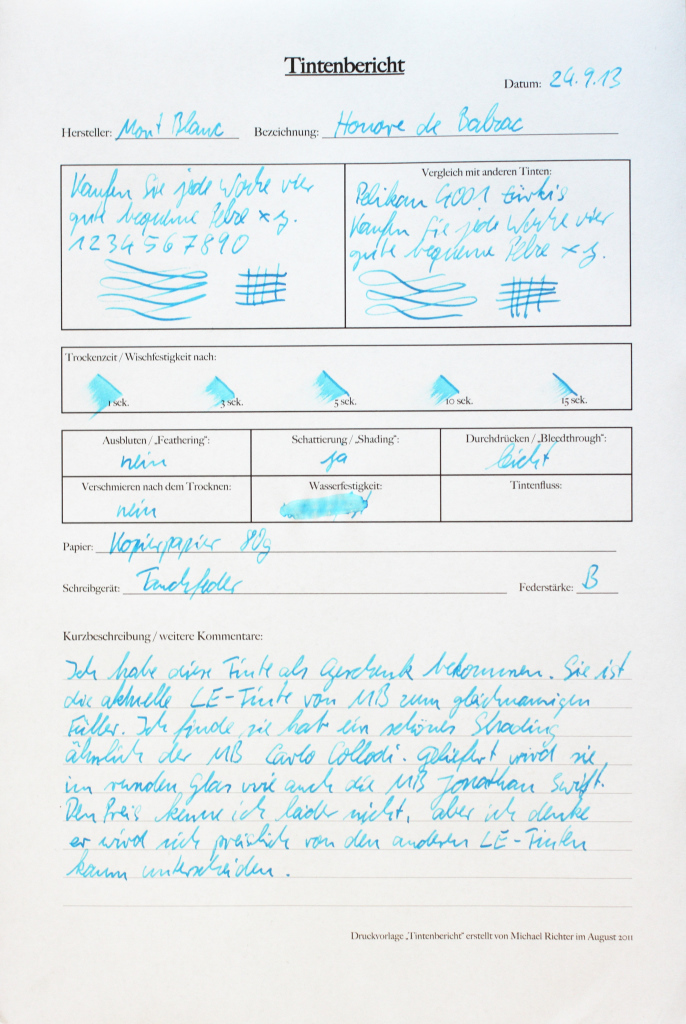 Tintenbericht
Datum: 24.9.13
Hersteller: Mont Blanc Bezeichnung: Honore de Balzac
Kaufen Sie jede Woche vier
gute bequeme Pelze x y.
1234567890
Vergleich mit anderen Tinten:
Pelikan 4001 türkis
Kaufen Sie jede Woche vier
gute bequeme Pelze x y.
Trockenzeit / Wischfestigkeit nach:
1 sek. 3 sek. 5 sek. 10 sek. 15 sek.
Ausbluten / „Feathering": Schattierung / „Shading": Durchdrücken / „Bleedthrough":
nein ja leicht
Verschmieren nach dem Trocknen: Wasserfestigkeit: Tintenfluss:
nein
Papier: Kopierpapier 80g
Schreibgerät: Tauchfeder Federstärke: B
Kurzbeschreibung / weitere Kommentare:
Ich habe diese Tinte als Geschenk bekommen. Sie ist
die aktuelle LE-Tinte von MB zum gleichnamigen
Füller. Ich finde, sie hat ein schönes Shading
ähnlich der MB Carlo Collodi. Geliefert wird sie
im runden Glas wie auch die MB Jonathan Swift.
Den Preis kenne ich leider nicht, aber ich denke
er wird sich preislich von den anderen LE-Tinten
kaum unterscheiden.
Druckvorlage „Tintenbericht" erstellt von Michael Richter im August 2011